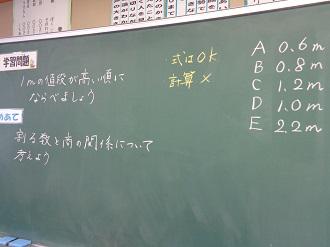 学習問題
1mの値段が高い順に
ならべましょう
めあて
割る数と商の関係について
考えよう
式はOK
計算×
A 0.6m
B 0.8m
C 1.2m
D 1.0m
E 2.2m